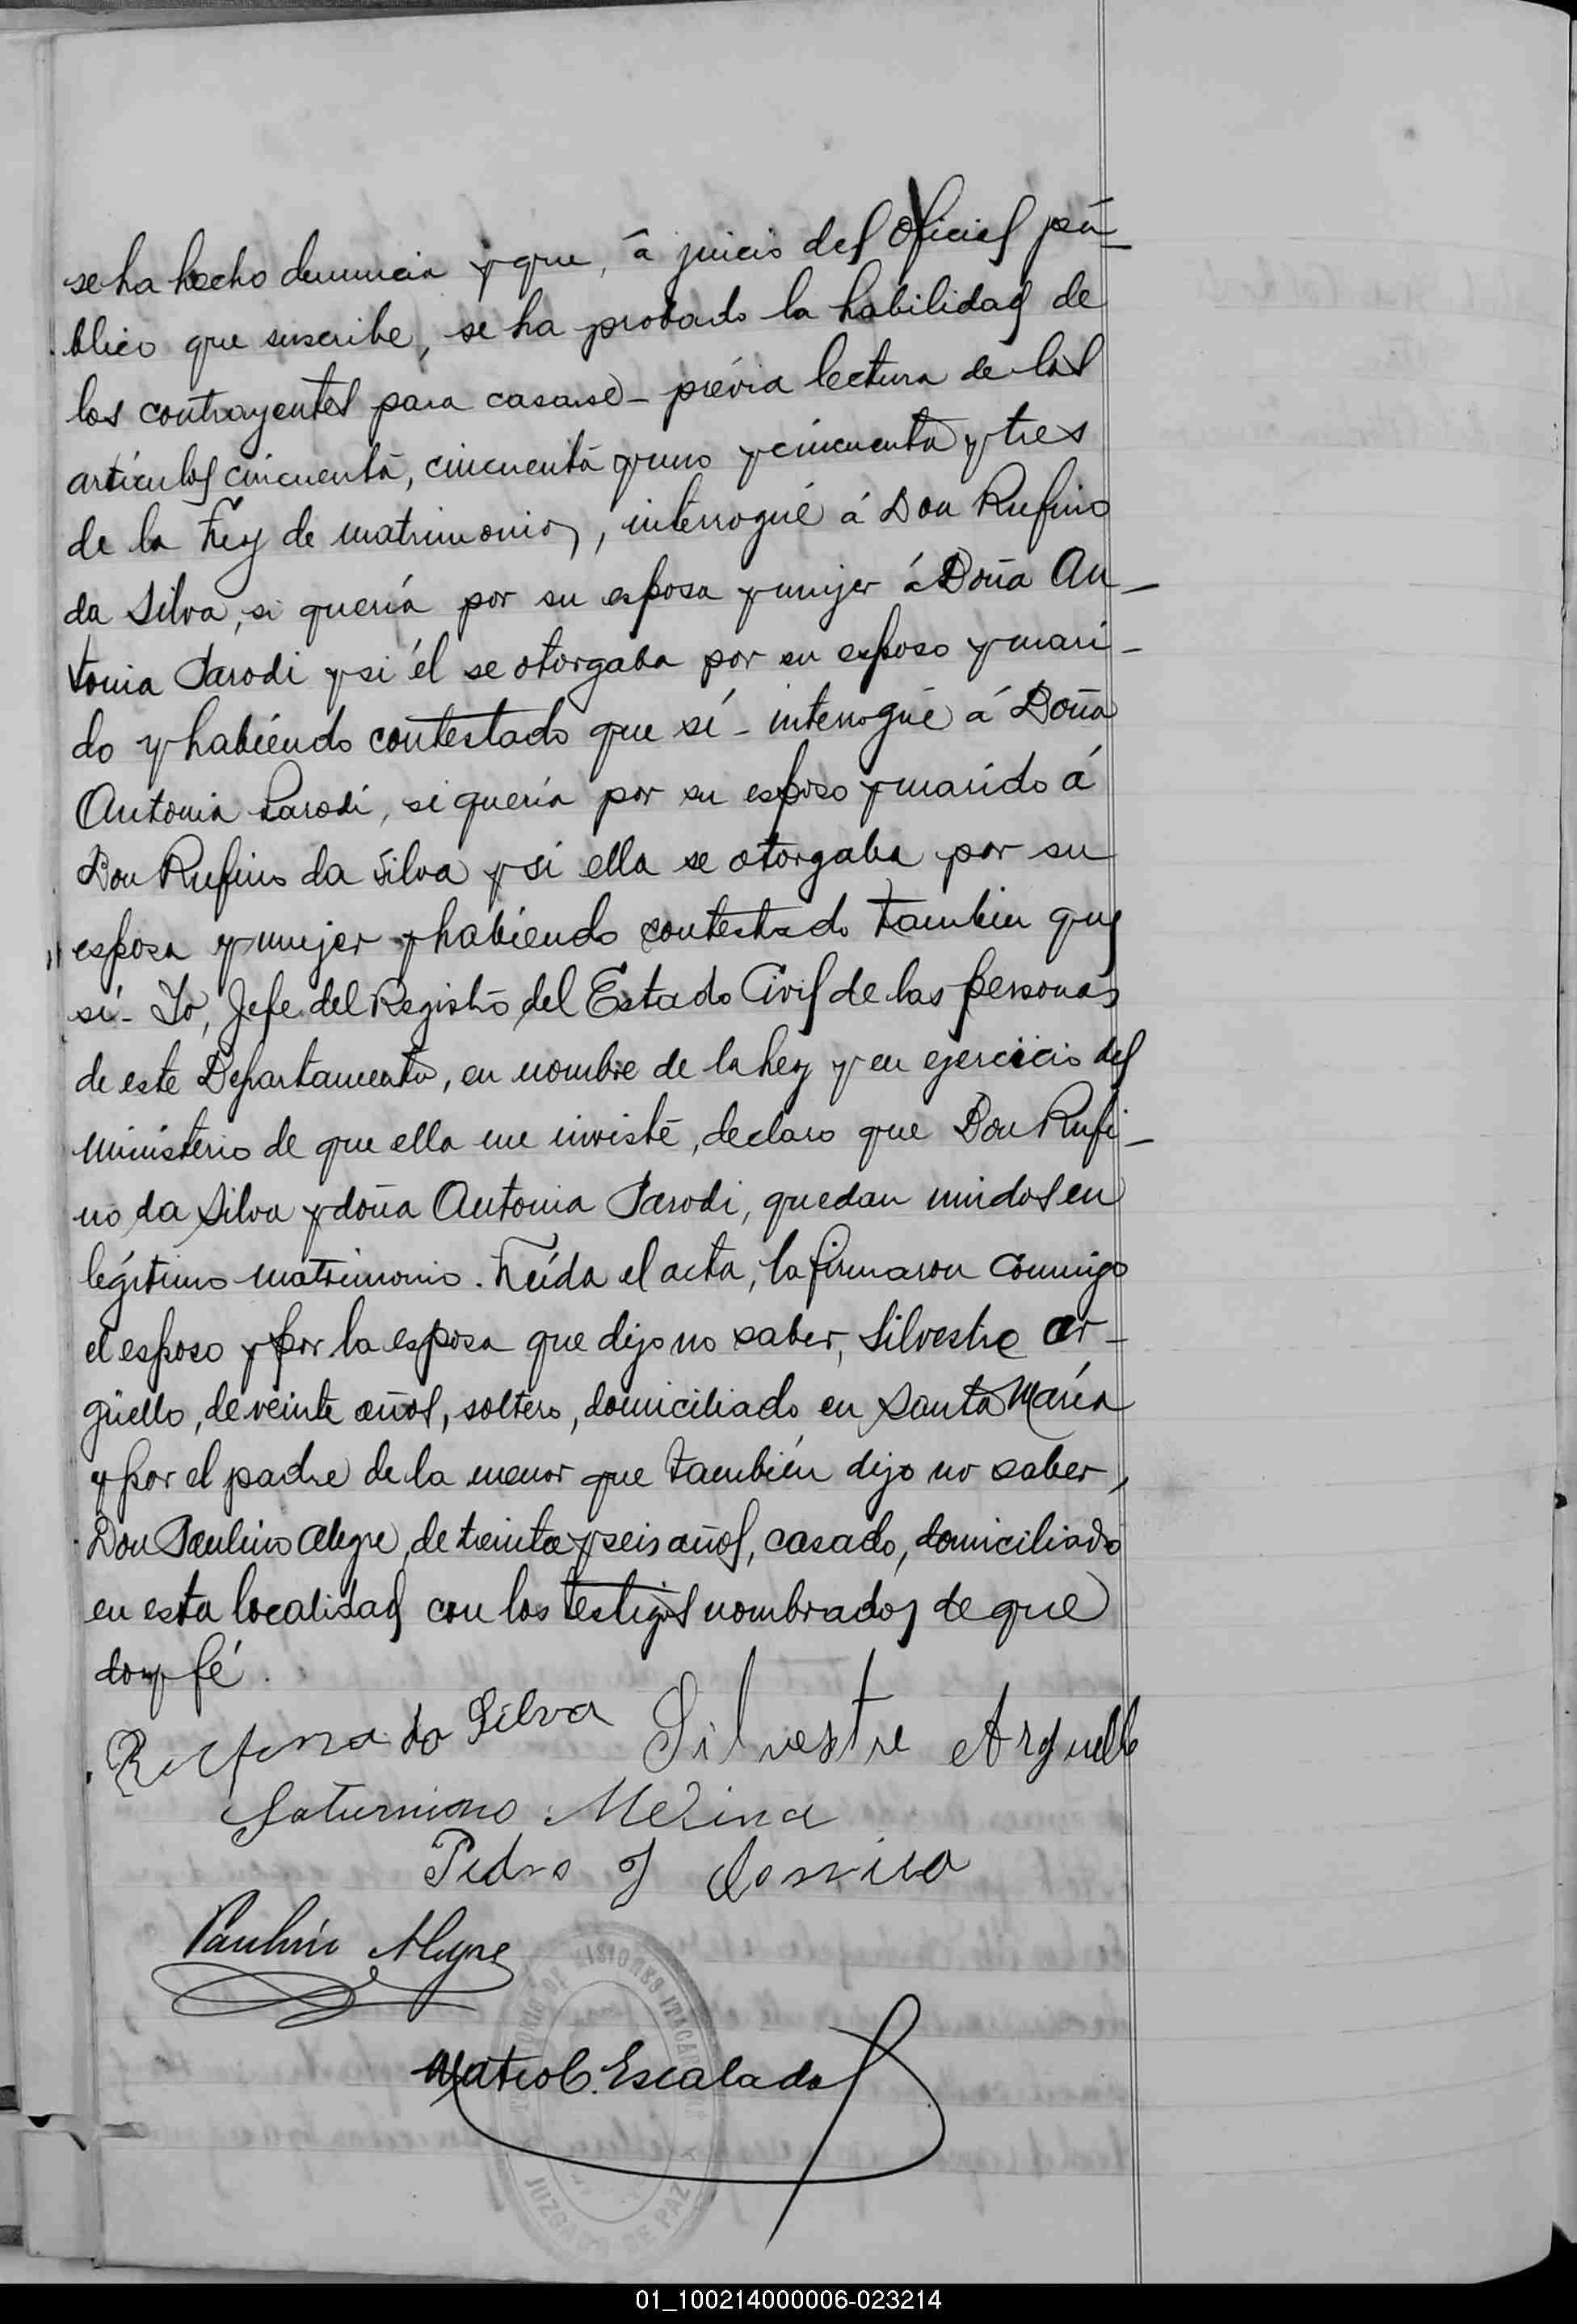 se ha hecho denuncia y que, á juicio del Oficial pú-
blico que suscribe, se ha probado la habilidad de
los contrayentes para casarse - prévia lectura de los
artículos cincuenta, cincuenta y uno y cincuenta y tres
de la Ley de matrimonio, interrogué á Don Rufino
da Silva, si quería por su esposa y mujer á Doña An-
tonia Parodi y si él se otorgaba por su esposo y mari-
do y habiendo contestado que sí - interrogué á Doña
Antonia Parodi, si quería por su esposo y marido á
Don Rufino da Silva y si ella se otorgaba por su
esposa y mujer y habiendo contestado tambien que
sí - Yo, Jefe del Registro del Estado Civil de las personas
de este Departamento, en nombre de la Ley y en ejercicio del
ministerio de que ella me inviste, declaro que Don Rufi-
no da Silva y doña Antonia Parodi, quedan unidos en
legítimo matrimonio. Leída el acta, la firmaron conmigo
el esposo y por la esposa que dijo no saber, Silvestre Ar-
güello, de veinte años, soltero, domiciliado en Santa María
y por el padre de la menor que también dijo no saber,
Don Paulino Alegre, de treinta y seis años, casado, domiciliado
en esta localidad con los testigos nombrados de que
doy fé.
da Silva Silvestre Arguello
Saturnino Medina
Pedro J
Paulino Alegre
Mateo C. Escalada
JUZGADO DE PAZ
01_100214000006-023214